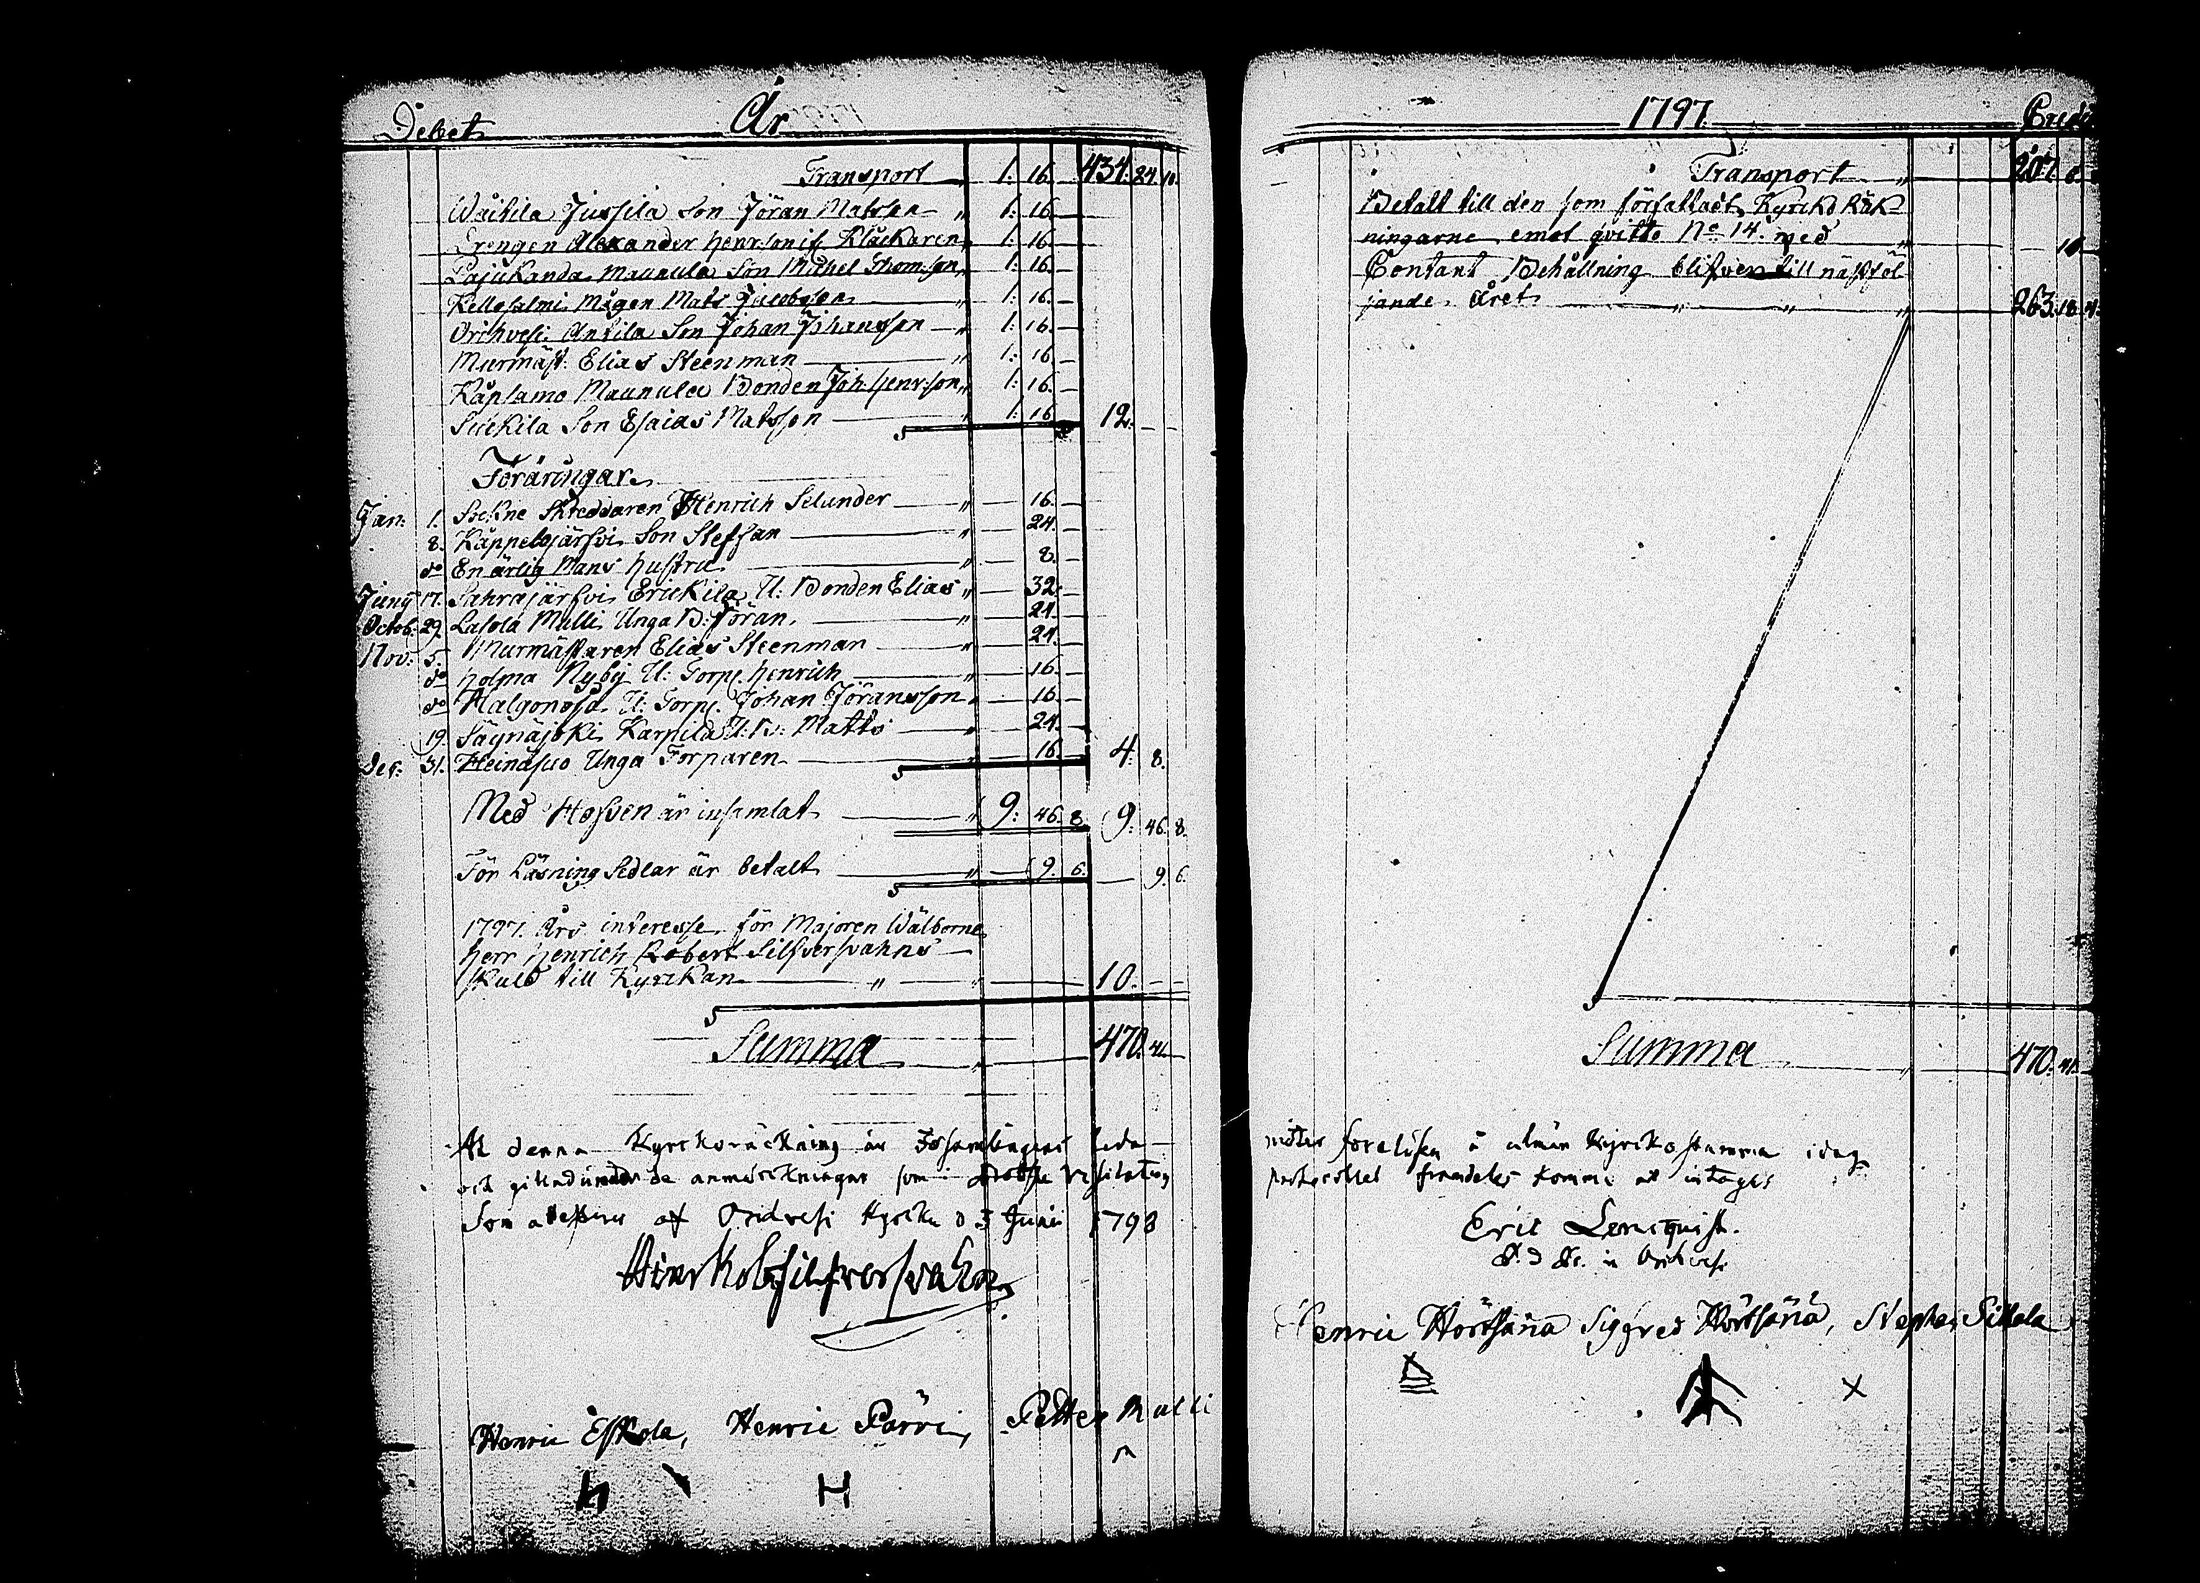 Debet År
Transport " 1: 16. 434. 24. 10.
Waitila Jussila Son Jöran Matsson " 1: 16.
Alexander Henrsson if Klåckaren " 1: 16.
Pajukanda Maunula Son Michel Thomsson " 1: 16.
Kellosalmi Mågen Mats Jacobsson " 1: 16.
Orihvesi Antila Son Johan Johansson " 1: 16.
Murmäst: Elias Steenman " 1: 16.
Maunula Bonden Joh: Henr:son " 1: 16.
Suckila Son Esaias Matsson " 1: 16. 12.
Föräringar
Jan: 1. Sockne Skreddaren Henrich Selunder " 16.
8. Käppelsjärfvi Son Steffan " 24.
do En ärlig Mans hustru 8.
17. Sahrajärfvi Erickila U: Bonden Elias " 32.
Octob: 29. Lasola Mulli Unga B: Jöran " 24.
Nov: 5. Murmästaren Elias Steenman " 24.
do Holma Nyby U: Torp. Henrich 16.
do U: Torp. Johan Jöransson " 16.
19. Säynäjoki Karpila U: B: Matts " 24.
Dec: 31. Heinäsuo Unga Torparen 16. 4. 8.
Med Hofven är insamlat " 9: 46. 8. 9: 46. 8.
För Läsning Sedlar är betalt " 9. 6. 9. 6.
1797. Års interesse för Majoren Wälborne
Herr Henrich Robert Silfversvahns
skuld till Kyrckan " 10.
Summa " 470. 41.
At denna Kyrckoräckning är Församlingens
och anmärckningar som
Som attesteras af Orihvesi Kyrcka d 3 Junii 1798
Henric Eskola, Henric Parvi, Petter Mulli
H
1797. Credit
Transport " 207.
Betalt till den som författadt Kyrcko Räk-
ningarne emot qvitto No 14. med "
Contant Behållning blifven till nästföl-
jande Året " " " 263. 18. 4.
Summa " 470. 41.
föreläsen å allmän Kyrkostämma idag
protocollet framdeles komma at intagas
Eric Lencquist.
Henric Hörtsänä Sigfred Hörtsänä, Stephan
X